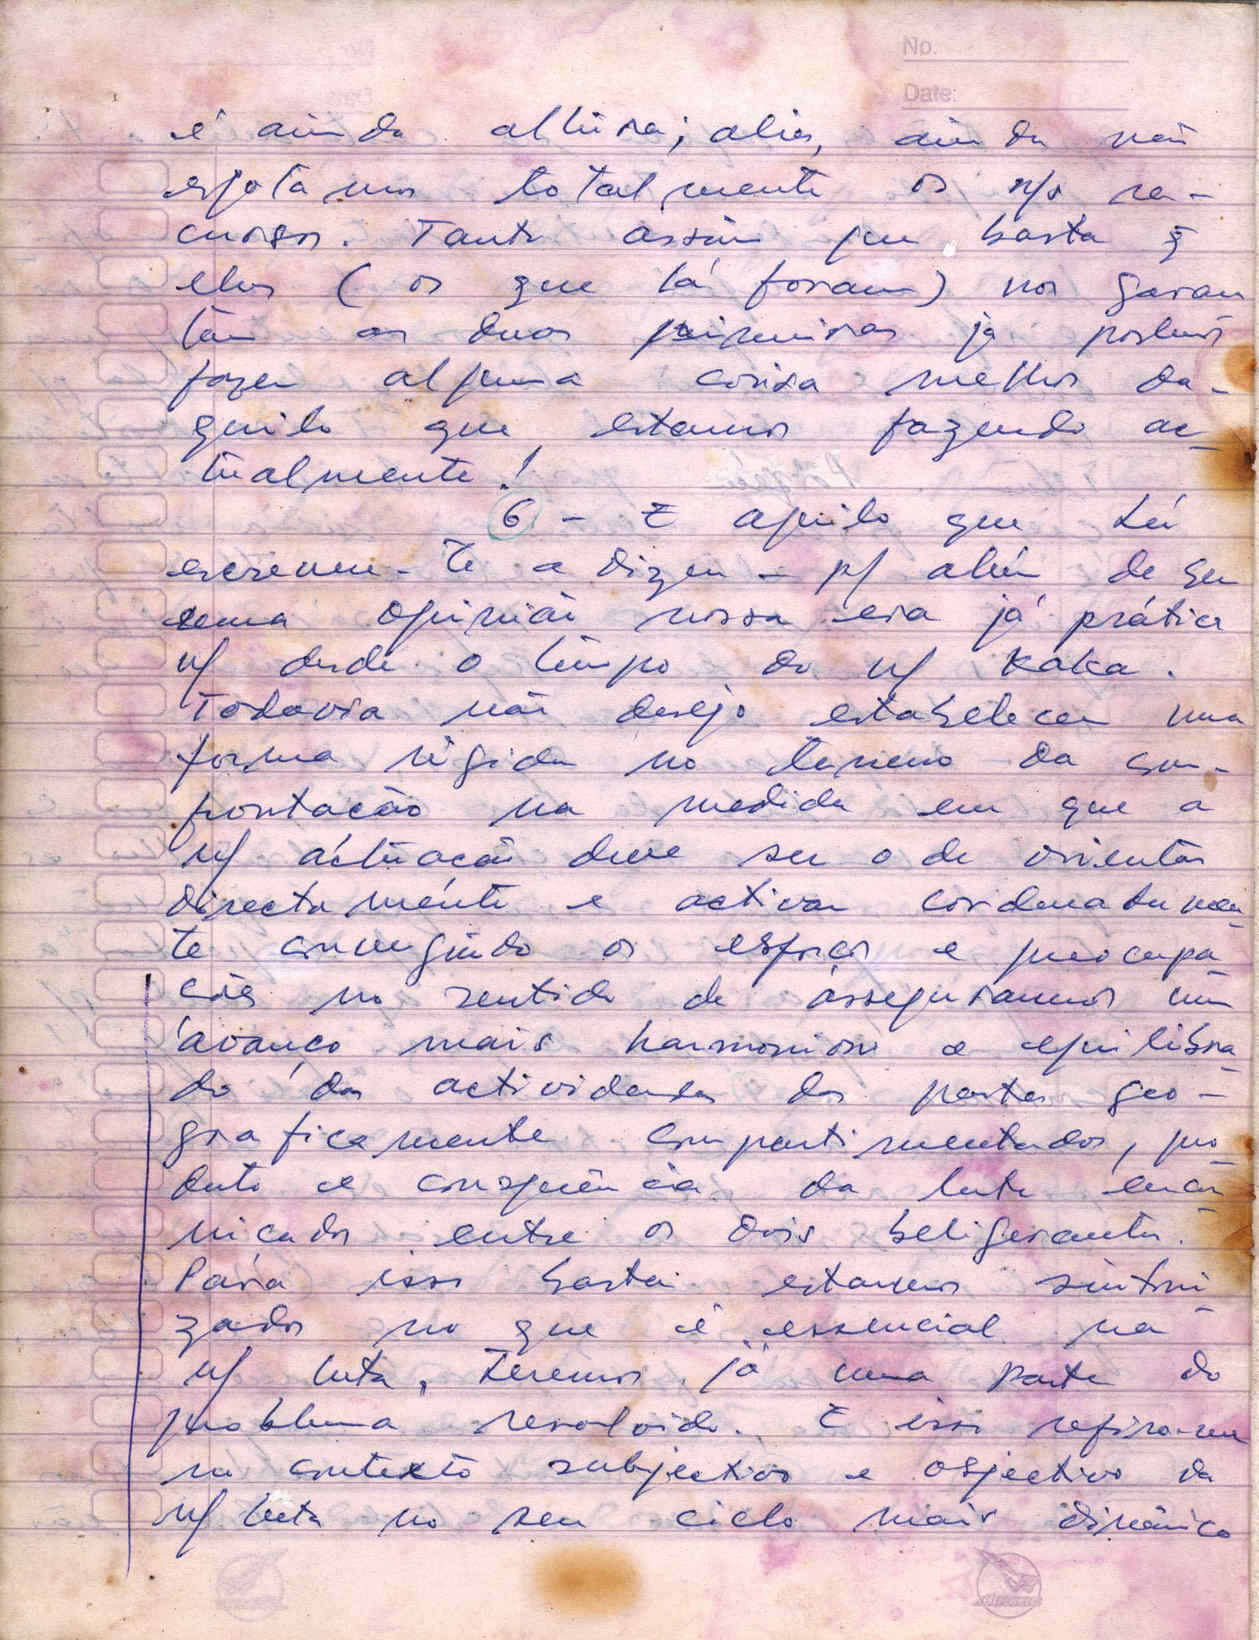 No.
Date:
é ainda altura; aliás, ainda não
esgotamos totalmente os n/s re-
cursos. Tanto assim que basta q
eles (os que lá foram) nos garan
tam as duas primeiras já podemos
fazer alguma coisa melhor da-
quilo que estamos fazendo ac-
tualmente!
6 - E aquilo que
escrevem-te a dizer - p/ além de ser
uma opinião nossa era já prática
n/ desde o tempo do n/ Kaka.
Todavia não desejo estabelecer uma
forma rígida no terreno da com-
portacão na medida em que a
n/ actuacão deve ser o de orientar
directamente e activar cordenadamen
te conjugindo os esforços e preocupa
cões no sentido de assegurarmos um
avanço mais harmonioso e equilibra
do das actividades das partes geo-
graficamente compartimentados, pro
duto e consequência da luta encar
nicados entre os dois beligerantes.
Para isso basta estarmos sintoni
zados no que é essencial na
n/ luta. Teremos já uma parte do
problema resolvido. E isso refiro-me
no contexto subjectivo e objectivo da
n/ luta no seu ciclo mais dinâmico